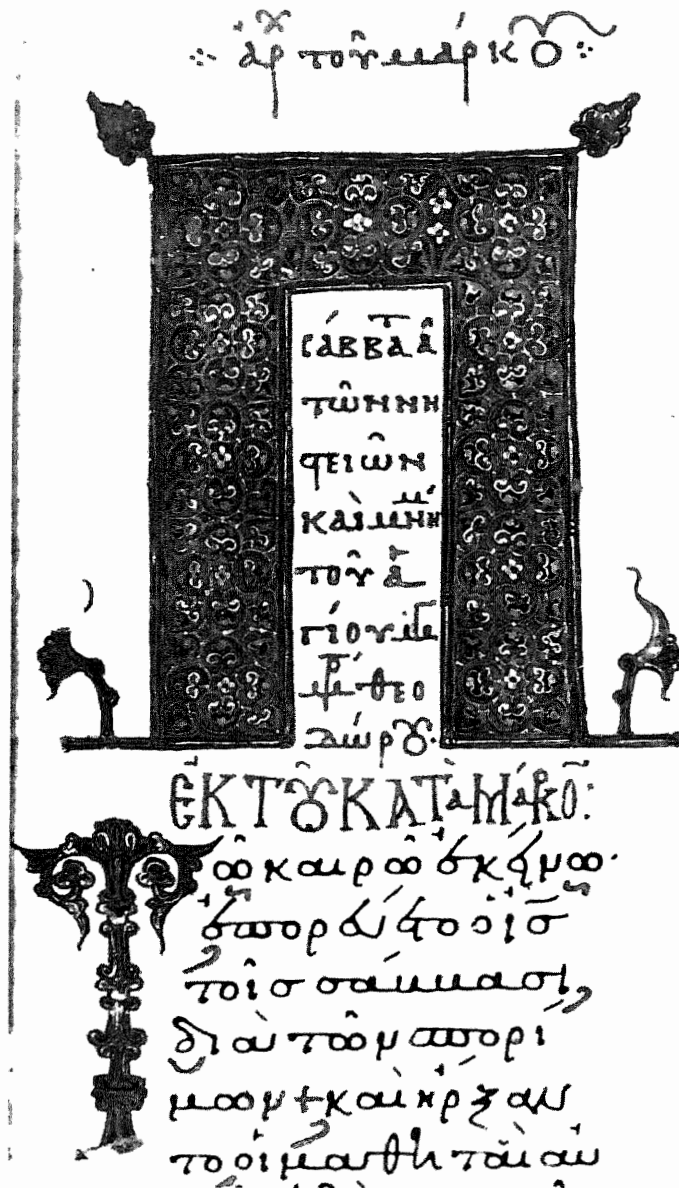 ἀρχ τοῦ μάρκου
σάββατ ᾱ
τῶν νη
στειῶν
καὶ μνήμη
τοῦ ἁ
γίου
θεο
δώρου
ἐκ τοῦ κατὰ μάρκον
Τῶ καιρῶ ἐκείνω
ἐπορεύετο ὁ ις
τοῖς σάββασι
διὰ τῶν σπορί
μων + καὶ ἤρξαν
το οἱ μαθηταὶ αὐ